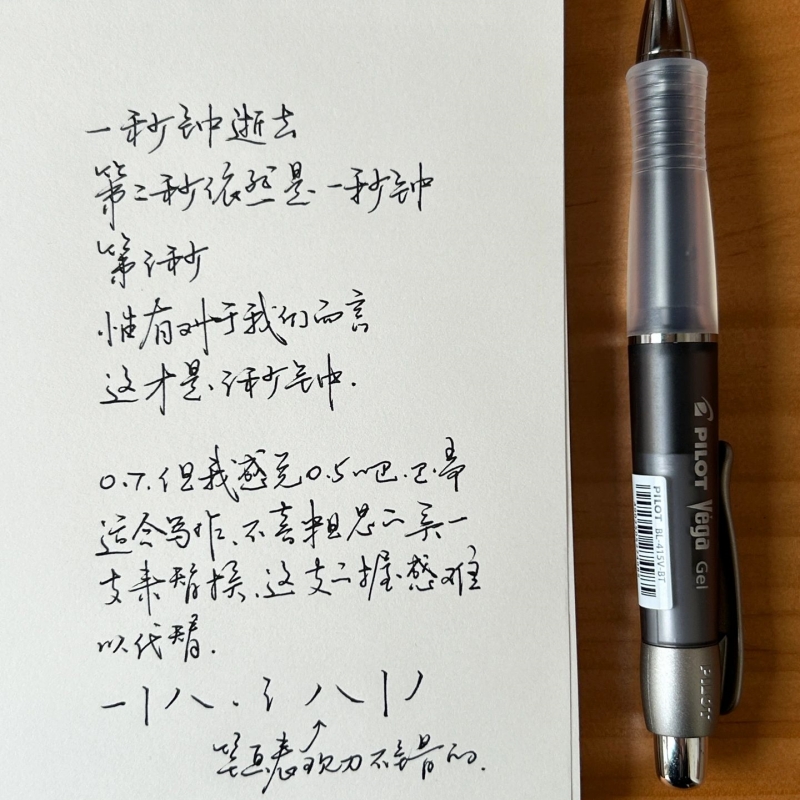 一秒钟逝去
第二秒依然是一秒钟
第三秒
惟有对于我们而言
这才是三秒钟.
0.7.但我感觉0.5吧.已带
适合写作.不喜粗思
支来替换.这支 握感难
以代替.
笔画表现力不错的.
PILOT
Vega Gel
PILOT BL-415V-BT
PILOT